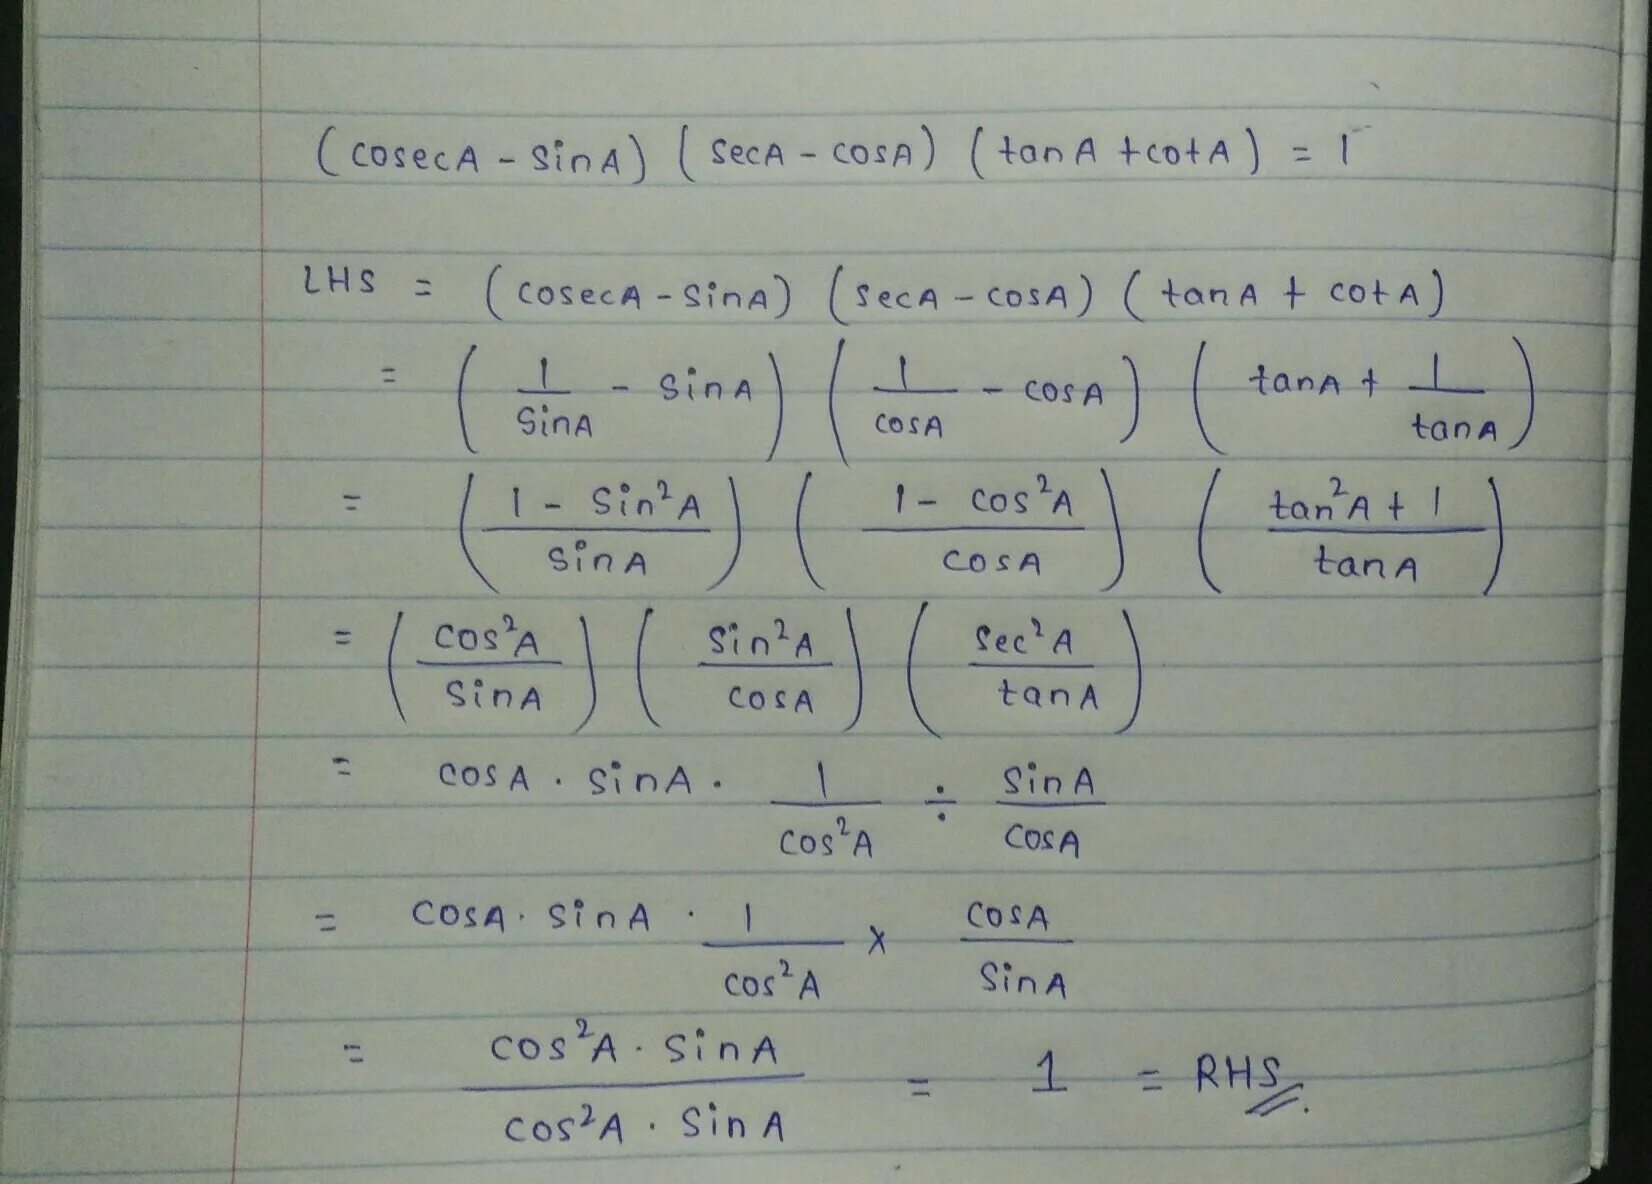 (cosecA - sinA) (secA - cosA) (tanA + cotA) = 1
LHS = (cosecA - sinA) (secA - cosA) (tanA + cotA)
= (1/sinA - sinA) (1/cosA - cosA) (tanA + 1/tanA)
= (1 - sin²A/sinA) (1 - cos²A/cosA) (tan²A + 1/tanA)
= (cos²A/sinA) (sin²A/cosA) (sec²A/tanA)
= cosA . sinA . 1/cos²A ÷ sinA/cosA
= cosA . sinA . 1/cos²A × cosA/sinA
= cos²A . sinA/cos²A . sinA = 1 = RHS